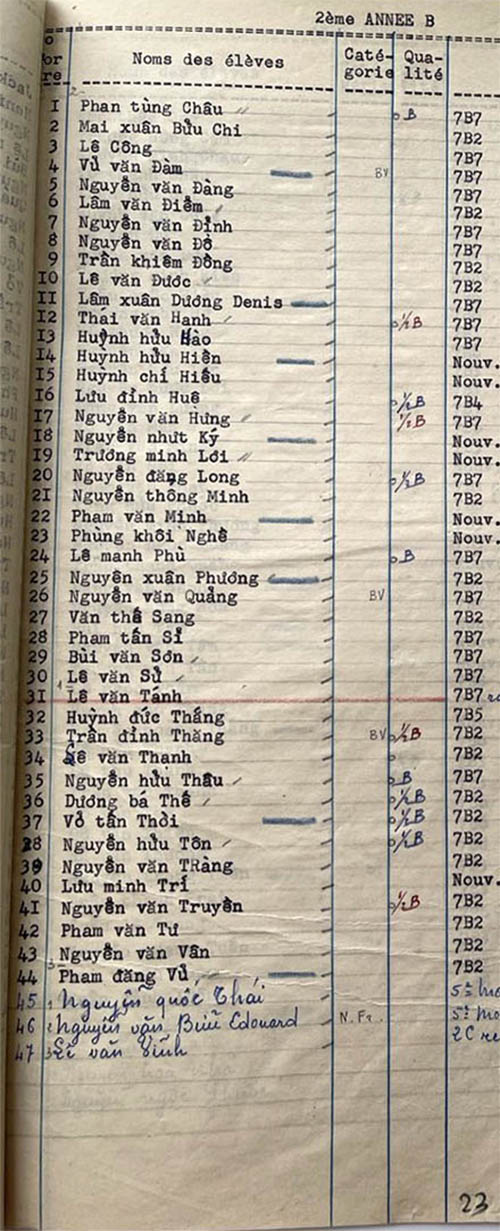 2ème ANNEE B
Noms des élèves Caté- Qua-
gorie lité
I Phan tùng Châu B 7B7
2 Mai xuân Bửu Chi 7B2
3 Lê Công 7B7
4 Vủ văn Đàm BV 7B7
5 Nguyễn văn Đàng 7B7
6 Lâm văn Điểm 7B2
7 Nguyễn văn Đỉnh 7B7
8 Nguyễn văn Đờ 7B7
9 Trần khiêm Đồng 7B2
IO Lê văn Đước 7B2
II Lâm xuân Dương Denis 7B7
I2 Thái văn Hanh ½B 7B7
I3 Huỳnh hửu Hào 7B7
I4 Huỳnh hửu Hiền Nouv.
I5 Huỳnh chí Hiếu Nouv.
I6 Lưu đỉnh Huê ½B 7B4
I7 Nguyễn văn Hưng ½B 7B7
I8 Nguyễn nhứt Ký Nouv.
I9 Trương minh Lới Nouv.
20 Nguyễn đăng Long ½B 7B7
2I Nguyễn thông Minh 7B2
22 Pham văn Minh Nouv.
23 Phùng khôi Nghề Nouv.
24 Lê manh Phù B 7B7
25 Nguyễn xuân Phương 7B2
26 Nguyễn văn Quảng BV 7B7
27 Văn thế Sang 7B2
28 Pham tấn Sỉ 7B7
29 Bùi văn Sơn 7B2
30 Lê văn Sử 7B7
3I Lê văn Tánh 7B7
32 Huỳnh đức Thắng 7B5
33 Trần đỉnh Thăng BV ½B 7B2
34 Lê văn Thanh 7B2
35 Nguyễn hửu Thâu B 7B7
36 Dương bá Thế ½B 7B2
37 Vỏ tấn Thời ½B 7B2
38 Nguyễn hửu Tôn ½B 7B2
39 Nguyễn văn TRàng 7B2
40 Lưu minh Trí Nouv.
4I Nguyễn văn Truyền ½B 7B2
42 Pham văn Tư 7B2
43 Nguyễn văn Vân 7B2
44 Pham đăng Vủ 7B2
45 Nguyễn quốc Thái
46 Nguyễn văn Bửu Edouard N.Fr.
47 Lê văn Vĩnh 2C
23